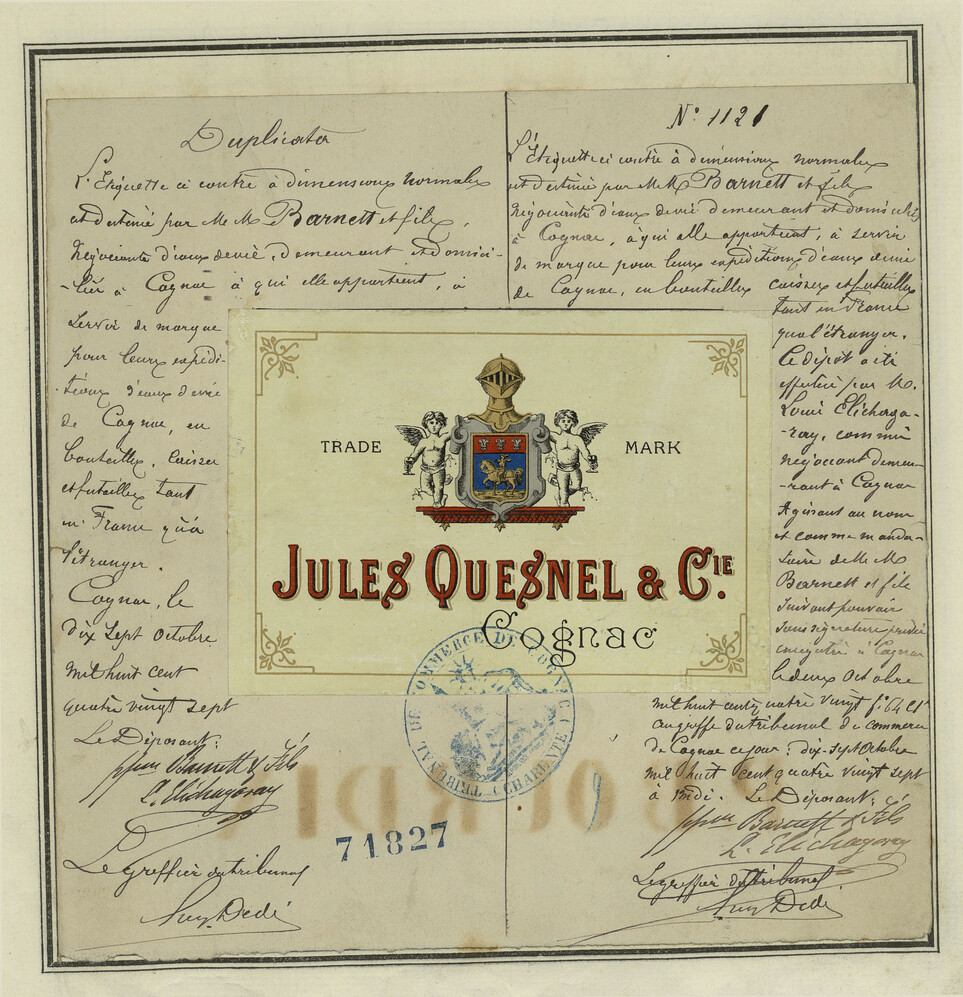 Duplicata
L'Etiquette ci contre à dimensions normales
est destinée par MM Barnett et fils,
Négociants d'eaux devie, demeurant et domici-
-liés à Cognac à qui elle appartient, à
servir de marque
pour leurs expédi-
-tions d'eaux devie
de Cognac, en
bouteilles, caisses
et futailles tant
en France qu'à
l'étranger.
Cognac, le
dix sept Octobre
mil huit cent
quatre vingt sept
Le Déposant:
ppon Barnett & Fils
L. Elichagaray
Le greffier du tribunal
Dédé
N° 1121
L'Etiquette ci contre à dimensions normales
est destinée par MM Barnett et fils
négociants d'eaux devie demeurant et domiciliés
à Cognac, à qui elle appartient, à servir
de marque pour leurs expéditions d'eaux devie
de Cognac, en bouteilles caisses et futailles
tant en France
qu'à l'étranger.
Le dépôt a été
effectué par M.
Louis Elichaga-
-ray, commis
négociant demeu-
-rant à Cognac
Agissant au nom
et comme manda-
-taire de MM
Barnett et fils
suivant pouvoir
sous signature privée
enregistré à Cognac
le deux Octobre
mil huit cent quatre vingt f° 64 C
au greffe du tribunal de commerce
de Cognac ce jour: dix-sept Octobre
mil huit cent quatre vingt sept
à midi. Le Déposant:
ppon Barnett & Fils
L. Elichagaray
Le greffier du tribunal
Dédé
TRADE MARK
JULES QUESNEL & CIE.
Cognac
TRIBUNAL DE COMMERCE DE COGNAC (CHARENTE)
71827